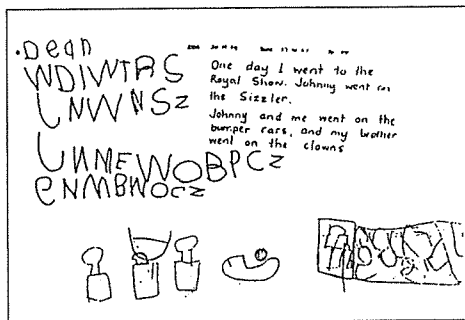 Dean
WDIWTRS
LNWNSz
LNMEWOBPCz
CNMBWOCz
One day I went to the
Royal Show. Johnny went on
the Sizzler.
Johnny and me went on the
bumper cars, and my brother
went on the clowns